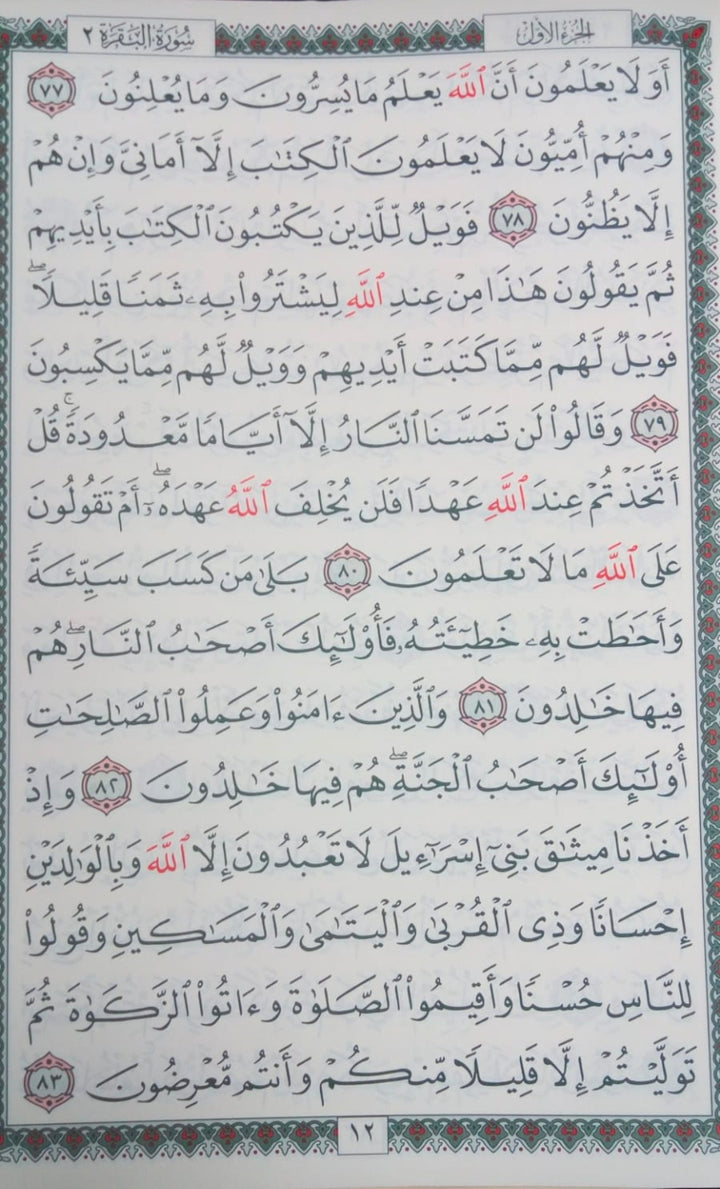 الجزء الأول
سورة البقرة ٢
أَوَلَا يَعْلَمُونَ أَنَّ ٱللَّهَ يَعْلَمُ مَا يُسِرُّونَ وَمَا يُعْلِنُونَ ٧٧
وَمِنْهُمْ أُمِّيُّونَ لَا يَعْلَمُونَ ٱلْكِتَٰبَ إِلَّآ أَمَانِىَّ وَإِنْ هُمْ
إِلَّا يَظُنُّونَ ٧٨ فَوَيْلٌ لِّلَّذِينَ يَكْتُبُونَ ٱلْكِتَٰبَ بِأَيْدِيهِمْ
ثُمَّ يَقُولُونَ هَٰذَا مِنْ عِندِ ٱللَّهِ لِيَشْتَرُوا۟ بِهِۦ ثَمَنًا قَلِيلًا ۖ
فَوَيْلٌ لَّهُم مِّمَّا كَتَبَتْ أَيْدِيهِمْ وَوَيْلٌ لَّهُم مِّمَّا يَكْسِبُونَ
٧٩ وَقَالُوا۟ لَن تَمَسَّنَا ٱلنَّارُ إِلَّآ أَيَّامًا مَّعْدُودَةً ۚ قُلْ
أَتَّخَذْتُمْ عِندَ ٱللَّهِ عَهْدًا فَلَن يُخْلِفَ ٱللَّهُ عَهْدَهُۥٓ ۖ أَمْ تَقُولُونَ
عَلَى ٱللَّهِ مَا لَا تَعْلَمُونَ ٨٠ بَلَىٰ مَن كَسَبَ سَيِّئَةً
وَأَحَٰطَتْ بِهِۦ خَطِيٓـَٔتُهُۥ فَأُو۟لَٰٓئِكَ أَصْحَٰبُ ٱلنَّارِ ۖ هُمْ
فِيهَا خَٰلِدُونَ ٨١ وَٱلَّذِينَ ءَامَنُوا۟ وَعَمِلُوا۟ ٱلصَّٰلِحَٰتِ
أُو۟لَٰٓئِكَ أَصْحَٰبُ ٱلْجَنَّةِ ۖ هُمْ فِيهَا خَٰلِدُونَ ٨٢ وَإِذْ
أَخَذْنَا مِيثَٰقَ بَنِىٓ إِسْرَٰٓءِيلَ لَا تَعْبُدُونَ إِلَّا ٱللَّهَ وَبِٱلْوَٰلِدَيْنِ
إِحْسَانًا وَذِى ٱلْقُرْبَىٰ وَٱلْيَتَٰمَىٰ وَٱلْمَسَٰكِينِ وَقُولُوا۟
لِلنَّاسِ حُسْنًا وَأَقِيمُوا۟ ٱلصَّلَوٰةَ وَءَاتُوا۟ ٱلزَّكَوٰةَ ثُمَّ
تَوَلَّيْتُمْ إِلَّا قَلِيلًا مِّنكُمْ وَأَنتُم مُّعْرِضُونَ ٨٣
١٢